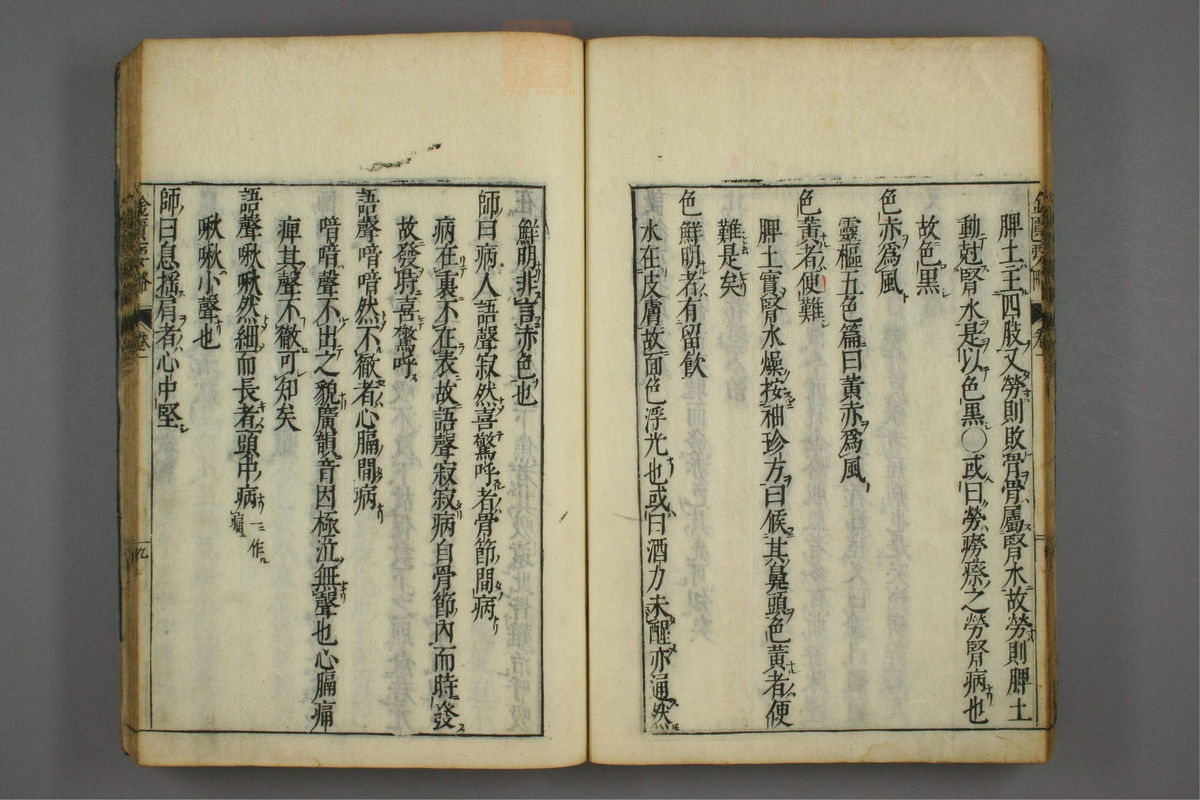 脾土主四肢又勞則敗骨骨屬腎水故勞則脾土
動尅腎水是以色黒〇或曰勞癆瘵之勞腎病也
故色黒
色赤爲風
靈樞五色篇曰黄赤爲風
色黄者便難
脾土實腎水燥按袖珍方曰候其鼻頭色黄者便
難是矣
色鮮明者有留飲
水在皮膚故面色浮光也或曰酒力未醒亦通然
鮮明非言赤色也
師曰病人語聲寂然喜驚呼者骨節間病
病在裏不在表故語聲寂寂病自骨節內而時發
故發時喜驚呼
語聲喑喑然不徹者心膈間病
喑喑聲不出之貌廣韻音因極泣無聲也心膈痛
痺其聲不徹可知矣
語聲啾啾然細而長者頭中病一作痛
啾啾小聲也
師曰息揺肩者心中堅
金匱要略 卷一 九